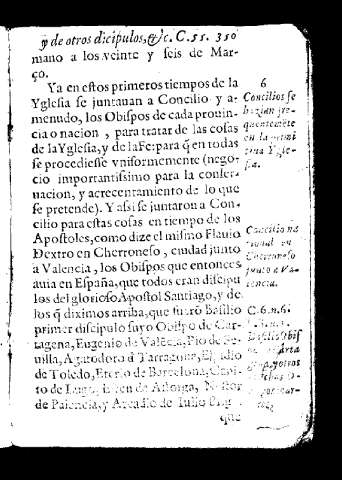 y de otros dicipulos, &c. C. 55. 350
mano a los veinte y seis de Mar-
ço.
Ya en estos primeros tiempos de la
Yglesia se juntauan a Concilio y a-
menudo, los Obispos de cada prouin-
cia o nacion, para tratar de las cosas
de la Yglesia, y de la Fe: para q̃ en todas
se procediesse vniformemente (nego-
cio importantissimo para la conser-
uacion, y acrecentamiento de lo que
se pretende). Y assi se juntaron a Con-
cilio para estas cosas en tiempo de los
Apostoles, como dize el mismo Flauio
Dextro en Cherroneso, ciudad junto
a Valencia, los Obispos que entonces
auia en España, que todos eran discipu
los del glorioso Apostol Santiago, y de
los q̃ diximos arriba, que fuerõ Basilio
primer discipulo suyo Obispo de Car-
tagena, Eugenio de Valẽcia, Pio de Se-
uilla, Agatodoro d̃ Tarragona, Elpidio
de Toledo, Eterio de Barcelona, Capi-
to de Lugo, Efren de Astorga, Nestor
de Palencia, y Arcadio de Iulio
que
6
Concilios se
hazian fre-
quentemẽte
en la primi
tiua Ygle-
sia.
Concilio na
cional en
Cherroneso
junto a Va-
lencia.
C. 6. n. 6.
Basilio Obis